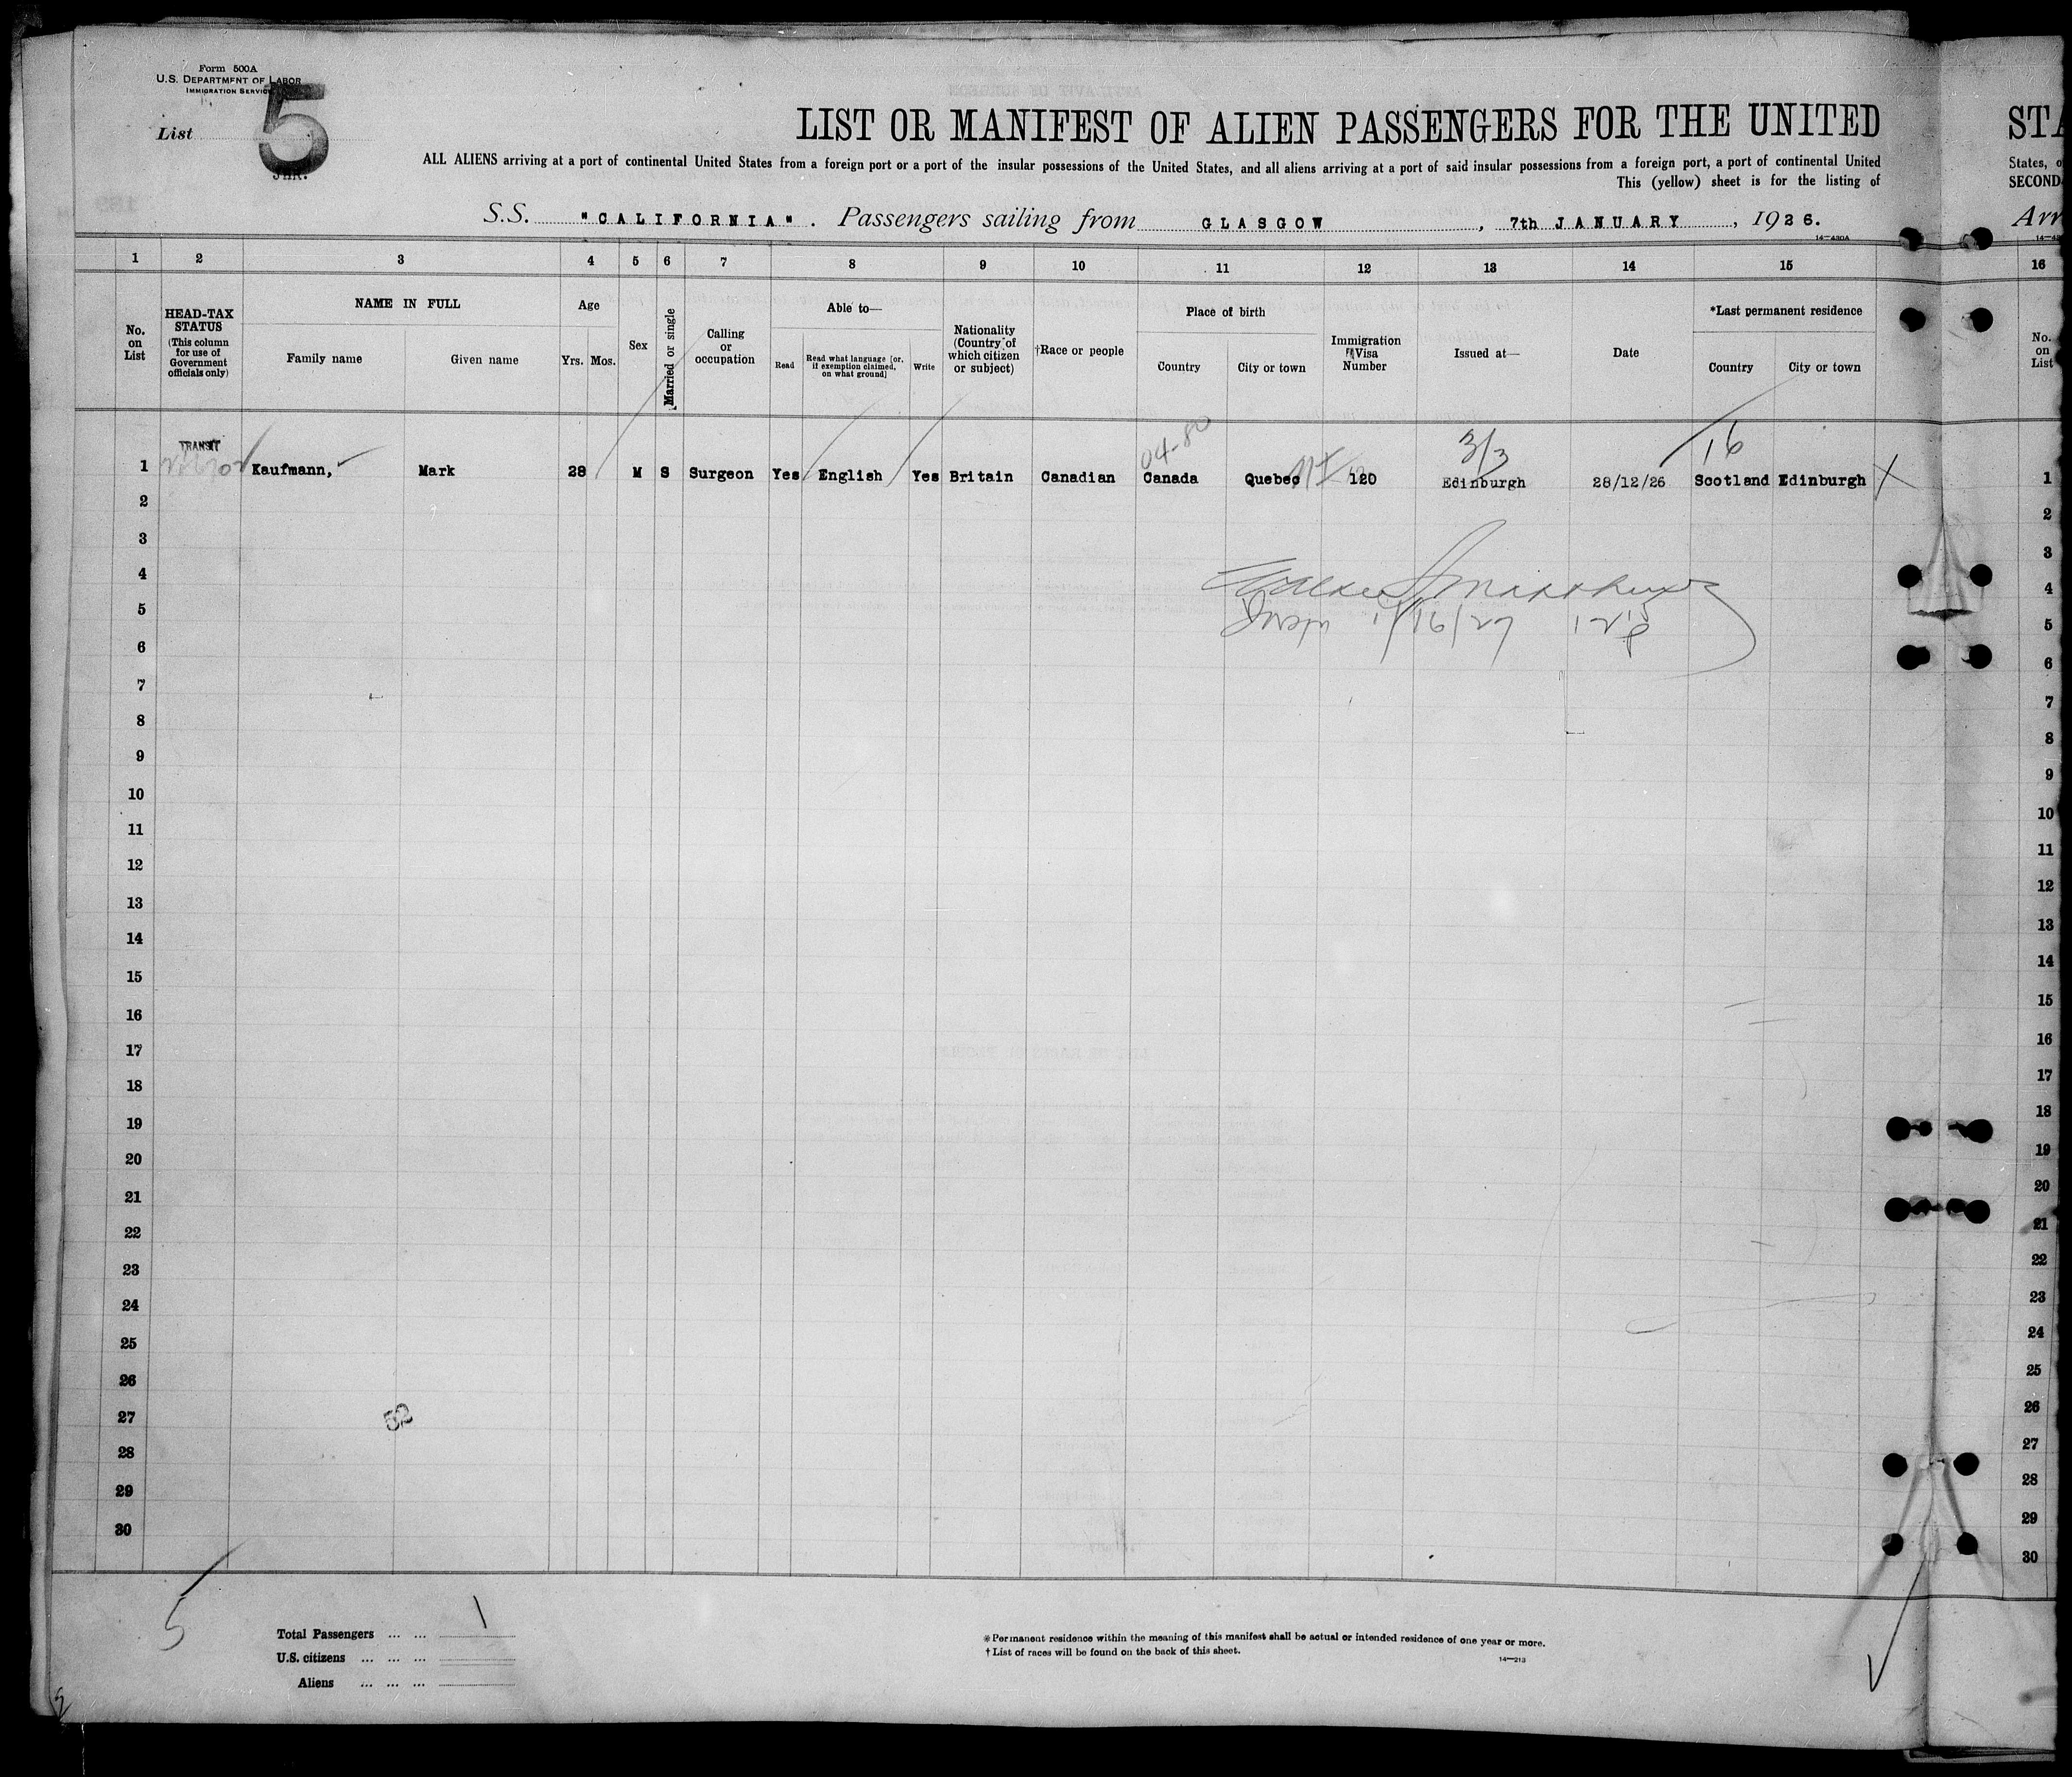 Form 500A
U.S. DEPARTMENT OF LABOR
IMMIGRATION SERVICE
List 5
LIST OR MANIFEST OF ALIEN PASSENGERS FOR THE UNITED
ALL ALIENS arriving at a port of continental United States from a foreign port or a port of the insular possessions of the United States, and all aliens arriving at a port of said insular possessions from a foreign port, a port of continental United
This (yellow) sheet is for the listing of
S.S. "CALIFORNIA". Passengers sailing from GLASGOW, 7th JANUARY, 1926.
14—430A
STA
States, o
SECOND-
Arr
1 2 3 4 5 6 7 8 9 10 11 12 13 14 15 16
No. on List
HEAD-TAX STATUS
(This column for use of Government officials only)
NAME IN FULL
Family name Given name
Age
Yrs. Mos.
Sex
Married or single
Calling or occupation
Able to—
Read
Read what language [or, if exemption claimed, on what ground]
Write
Nationality (Country of which citizen or subject)
†Race or people
Place of birth
Country City or town
Immigration Visa Number
Issued at—
Date
*Last permanent residence
Country City or town
No. on List
04-80 3/3 16
TRANSIT
1 Kaufmann, Mark 28 M S Surgeon Yes English Yes Britain Canadian Canada Quebec 120 Edinburgh 28/12/26 Scotland Edinburgh X 1
2 2
3 3
4 4
5 1/16/27 5
6 6
7 7
8 8
9 9
10 10
11 11
12 12
13 13
14 14
15 15
16 16
17 17
18 18
19 19
20 20
21 21
22 22
23 23
24 24
25 25
26 26
27 27
52
28 28
29 29
30 30
5
Total Passengers ... ... 1
U.S. citizens ... ... ...
Aliens ... ... ...
*Permanent residence within the meaning of this manifest shall be actual or intended residence of one year or more.
†List of races will be found on the back of this sheet.
14—213